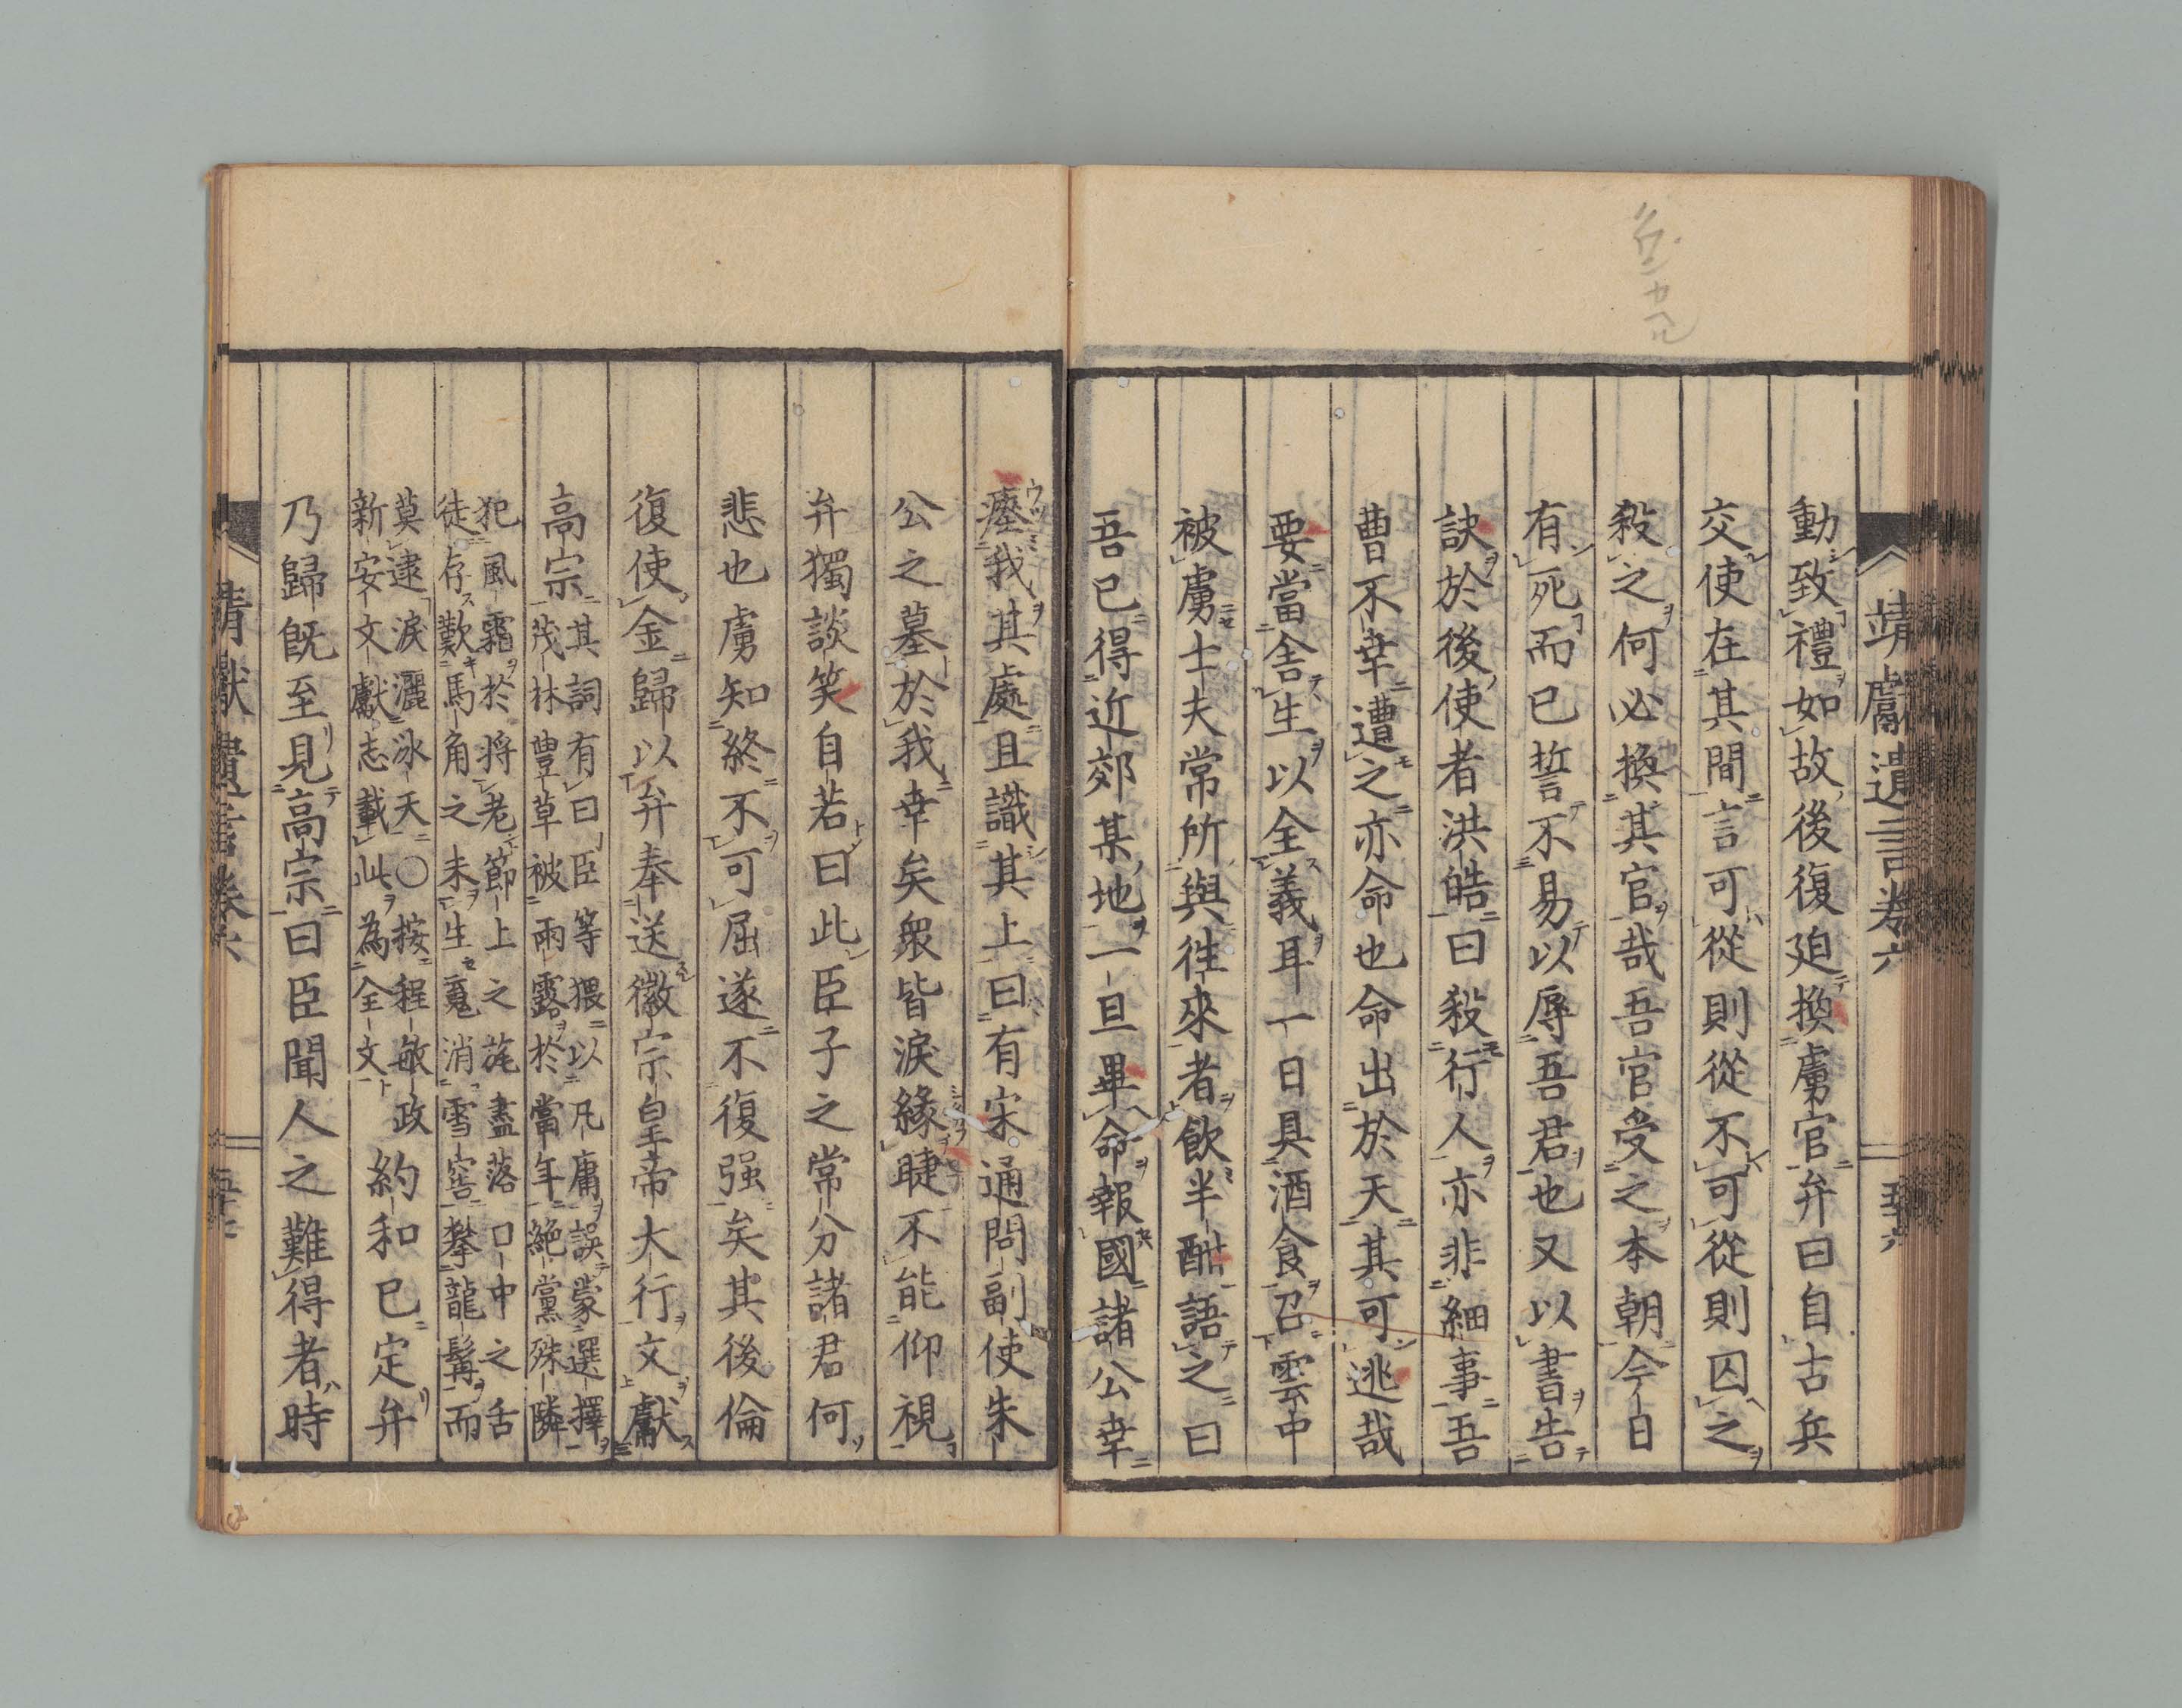 靖獻遺言卷六
動致禮如故後復廹換虜官弁曰自古兵
交使在其間言可從則從不可從則囚之
殺之何必換其官哉吾官受之本朝今日
有死而已誓不易以辱吾君也又以書告
訣於後使者洪皓曰殺行人亦非細事吾
曹不幸遭之亦命也命出於天其可逃哉
要當舎生以全義耳一日具酒食召雲中
被虜士夫常所與徃來者飲半酣語之曰
吾已得近郊某地一旦畢命報國諸公幸
瘞我其處且識其上曰有宋通問副使朱
公之墓於我幸矣衆皆淚緣睫不能仰視
弁獨談笑自若曰此臣子之常分諸君何
悲也虜知終不可屈遂不復强矣其後倫
復使金歸以弁奉送徽宗皇帝大行文獻
高宗
其詞有曰臣等猥以凡庸誤蒙選擇
茂林豐草被雨露於當年絶黨殊隣
犯風霜於將老節上之旄盡落口中之舌
徒存歎馬角之未生䰟消雪窖攀龍髯而
莫逮淚灑冰天○按程敏政
新安文獻志載此為全文
約和已定弁
乃歸旣至見高宗曰臣聞人之難得者時
靖獻遺言卷六